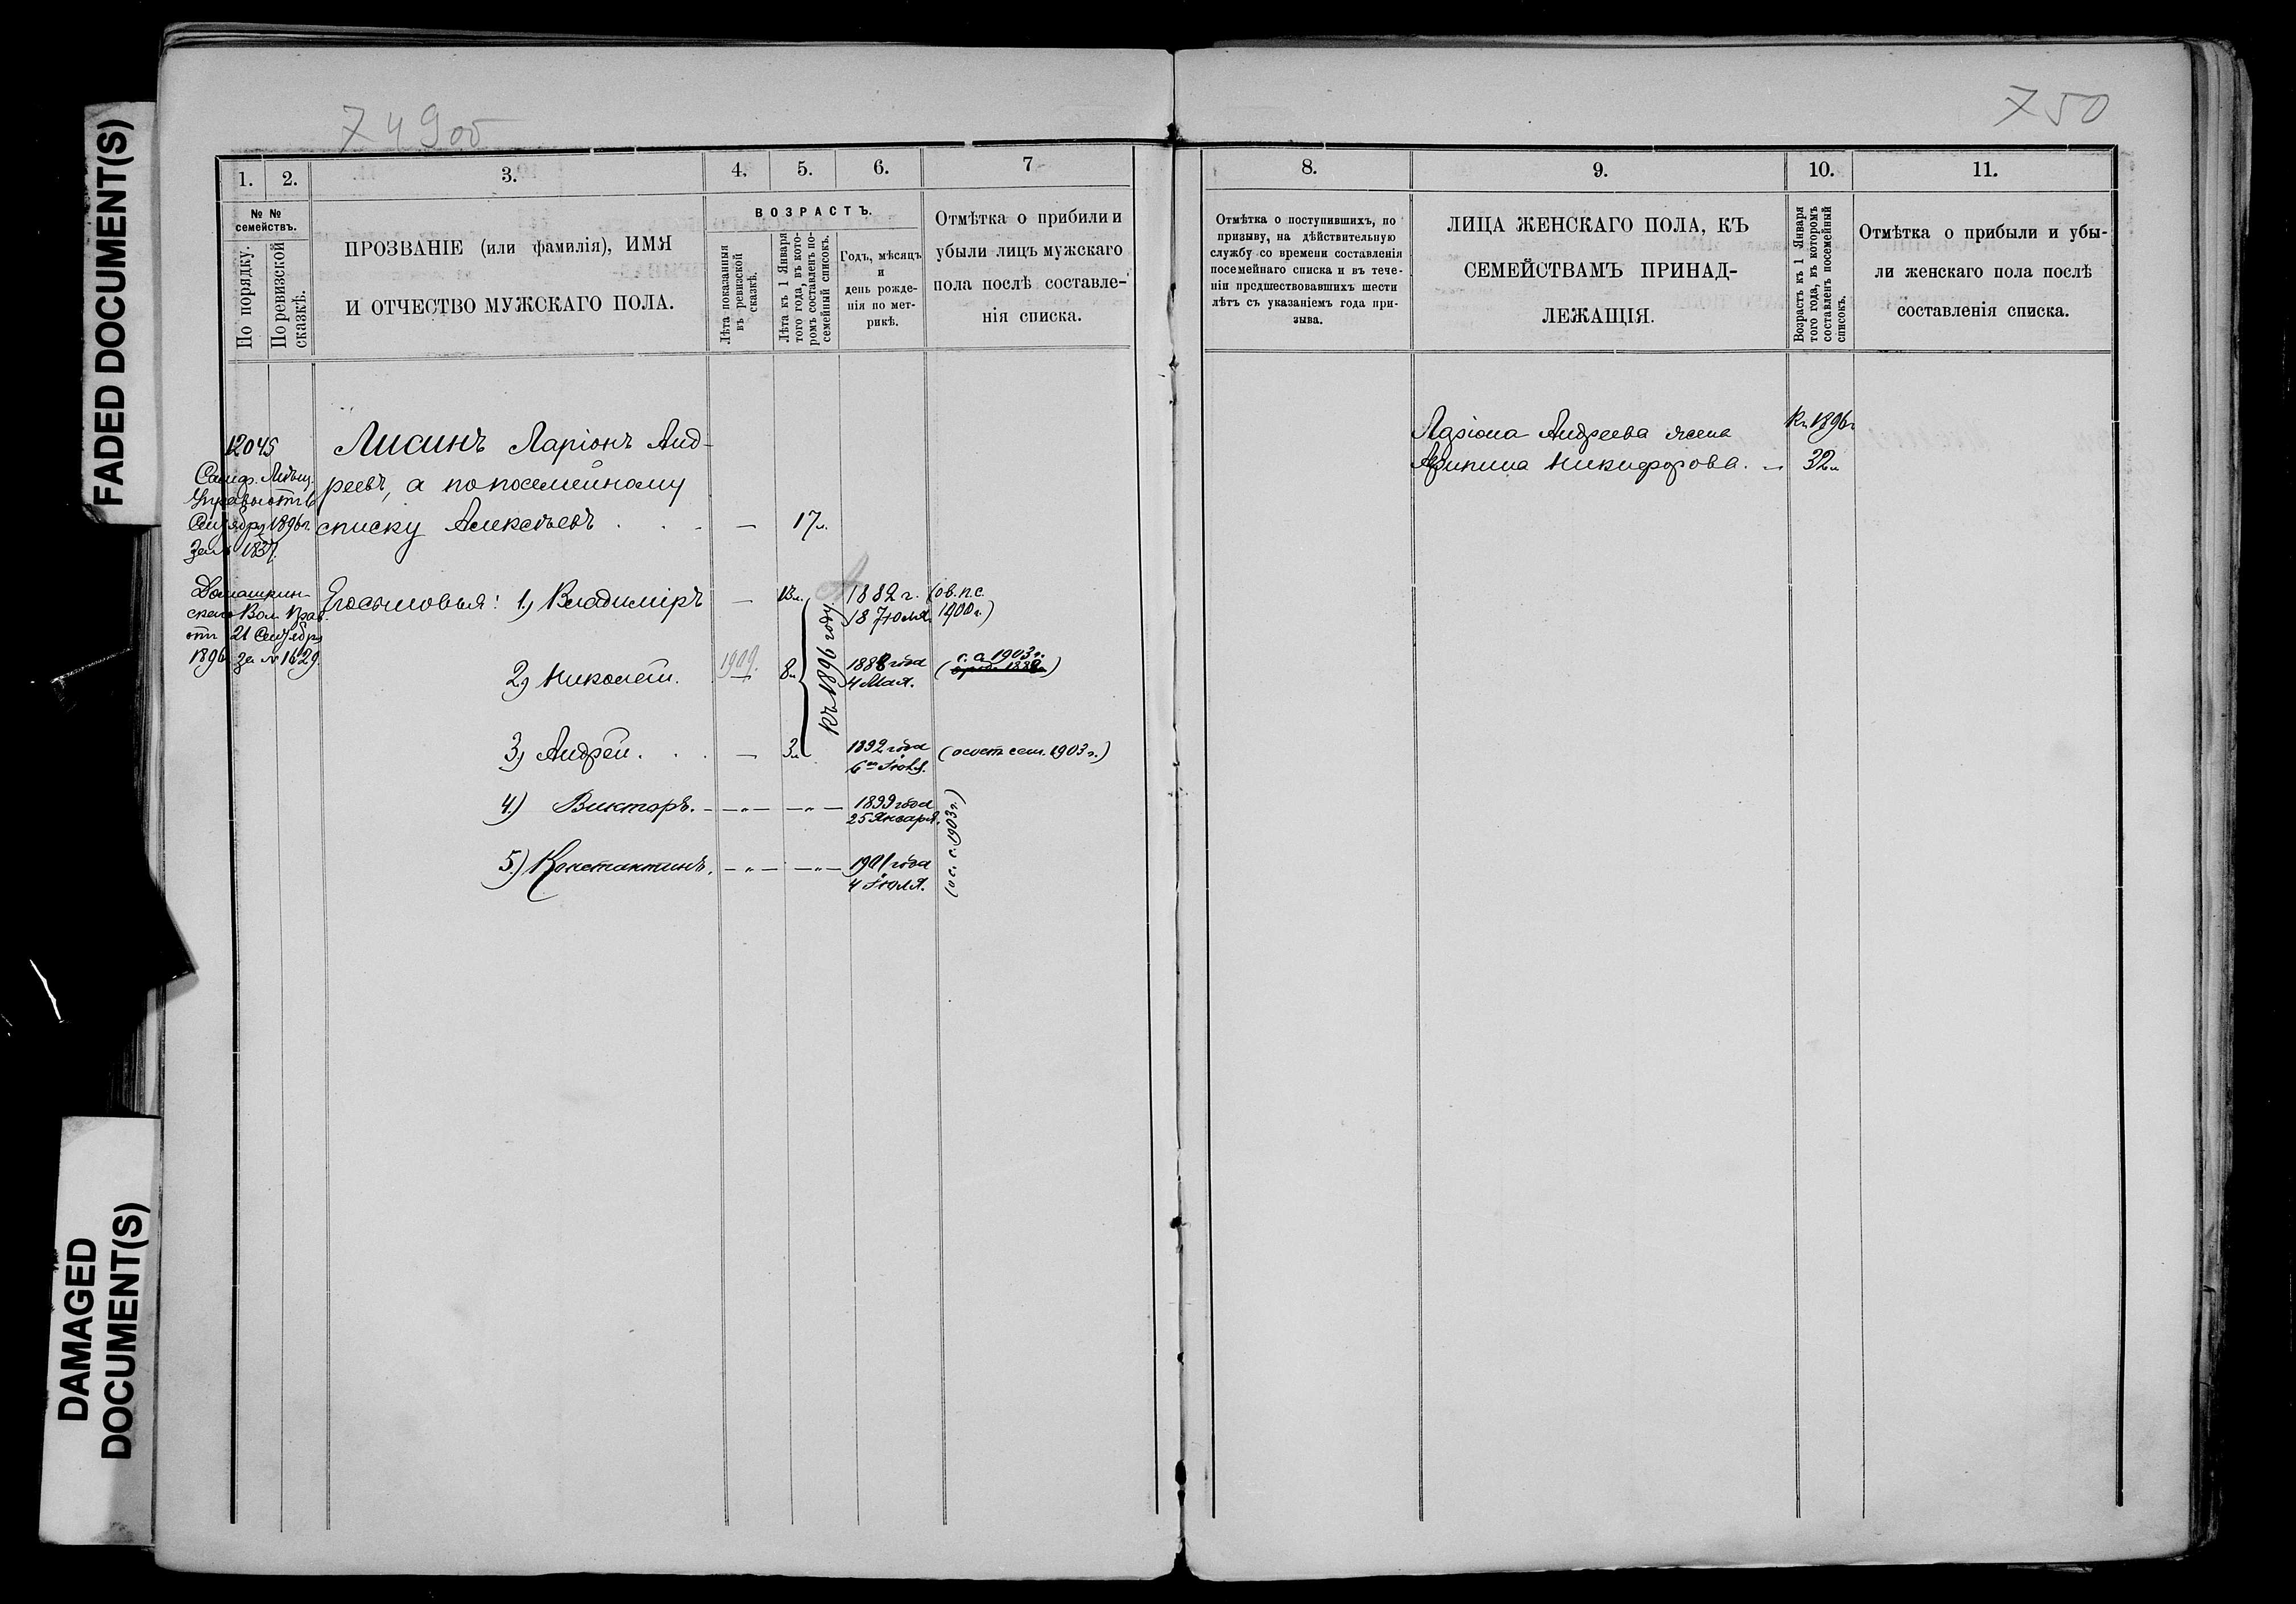 FADED DOCUMENT(S)
DAMAGED
DOCUMENT(S)
749об
750
1.
2.
3.
4.
5.
6.
7
№ №
семействъ.
По порядку.
По ревизской
сказкѣ.
ПРОЗВАНІЕ (или фамилія), ИМЯ
И ОТЧЕСТВО МУЖСКАГО ПОЛА.
ВОЗРАСТЪ.
Лѣта показанныя
въ ревизской
сказкѣ.
Лѣта къ 1 Января
того года, въ кото-
ромъ составленъ по-
семейный списокъ.
Годъ, мѣсяцъ
и
день рожде-
нія по мет-
рикѣ.
Отмѣтка о прибыли и
убыли лицъ мужскаго
пола послѣ составле-
нія списка.
8.
9.
10.
11.
Отмѣтка о поступившихъ, по
призыву, на дѣйствительную
службу со времени составленія
посемейнаго списка и въ тече-
ніи предшествовавшихъ шести
лѣтъ съ указаніемъ года при-
зыва.
ЛИЦА ЖЕНСКАГО ПОЛА, КЪ
СЕМЕЙСТВАМЪ ПРИНАД-
ЛЕЖАЩІЯ.
Возрастъ къ 1 Января
того года, въ которомъ
составленъ посемейный
списокъ.
Отмѣтка о прибыли и убы-
ли женскаго пола послѣ
составленія списка.
12045
отъ 16
Сентября 1896 г.
за № 1837.
Домашкин-
скаго Вол. Прав.
отъ 21 Сентября
1896 за № 1629
Лисинъ Ларіонъ Анд-
реевъ, а по посемейному
списку Алексѣевъ . . . — 17 л.
Его сыновья: 1) Владиміръ — 13 л. 1882 г. (ов. п. с.
18 Іюля. 1900 г.)
2) Николай. 1909. — 8 л 1888 года (с. с. 1903 г.
4 Мая.
3) Андрей. . . — 3 л 1892 года (осост сем. 1903 г.)
Къ 1896 году
4.) Викторъ. — „ — — „ — 1899 года
25 Января.
5.) Константинъ. — „ — — „ — 1901 года
4 Іюля.
(о с. с. 1903 г.)
Ларіона Андреева жена Къ 1896 г
Агрипина Никифорова. — 32 л